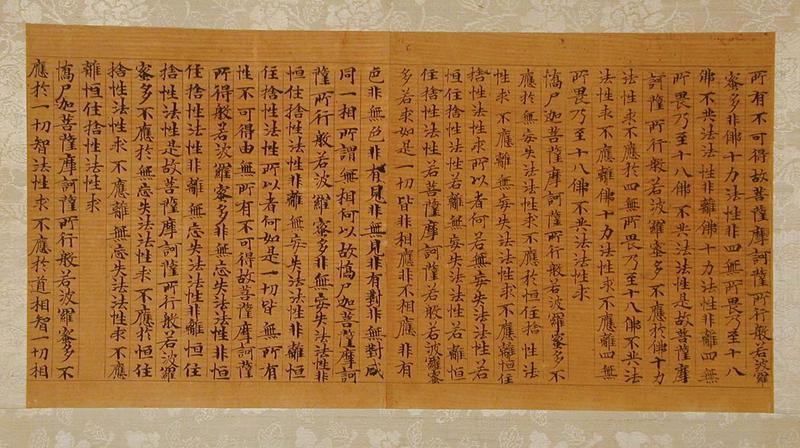 所有不可得故菩薩摩訶薩所行般若波羅
蜜多非佛十力法性非四無所畏乃至十八
佛不共法法性非離佛十力法性非離四無
所畏乃至十八佛不共法法性是故菩薩摩
訶薩所行般若波羅蜜多不應於佛十力
法性求不應於四無所畏乃至十八佛不共法
法性求不應離佛十力法性求不應離四無
所畏乃至十八佛不共法法性求
憍尸迦菩薩摩訶薩所行般若波羅蜜多不
應於無妄失法法性求不應於恒住捨性法
性求不應離無妄失法法性求不應離恒住
捨性法性求所以者何若無妄失法法性若
恒住捨性法性若離無妄失法法性若離恒
住捨性法性若菩薩摩訶薩若般若波羅蜜
多若求如是一切皆非相應非不相應非有
色非無色非有見非無見非有對非無對咸
同一相所謂無相何以故憍尸迦菩薩摩訶
薩所行般若波羅蜜多非無妄失法法性非
恒住捨性法性非離無妄失法法性非離恒
住捨性法性所以者何如是一切皆無所有
性不可得由無所有不可得故菩薩摩訶薩
所得般若波羅蜜多非無忘失法法性非恒
住捨性法性非離無忘失法法性非離恒住
捨性法性是故菩薩摩訶薩所行般若波羅
蜜多不應於無忘失法法性求不應於恒住
捨性法性求不應離無忘失法法性求不應
離恒住捨性法性求
憍尸迦菩薩摩訶薩所行般若波羅蜜多不
應於一切智法性求不應於道相智一切相